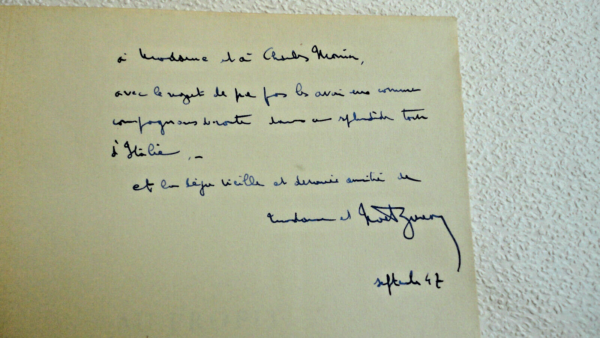 à Madame et à Charles Morin,
avec le regret de ne pas les avoir eus comme
compagnons de route dans un splendide tour
d'Italie. _
et la déjà vieille et dévouée amitié de
Madame et
septembre 47